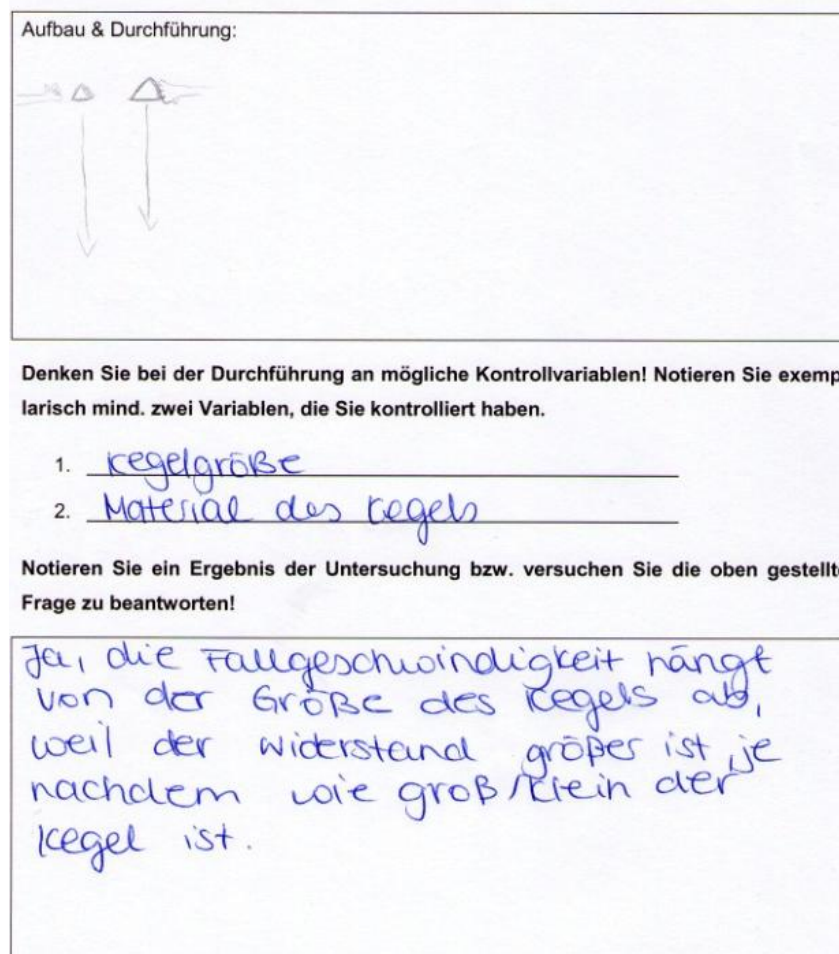 Aufbau & Durchführung:
Denken Sie bei der Durchführung an mögliche Kontrollvariablen! Notieren Sie exemp
larisch mind. zwei Variablen, die Sie kontrolliert haben.
1. Kegelgröße
2. Material des Kegels
Notieren Sie ein Ergebnis der Untersuchung bzw. versuchen Sie die oben gestellte
Frage zu beantworten!
Ja, die Fallgeschwindigkeit hängt
von der Größe des Kegels ab,
weil der Widerstand größer ist, je
nachdem wie groß/klein der
Kegel ist.